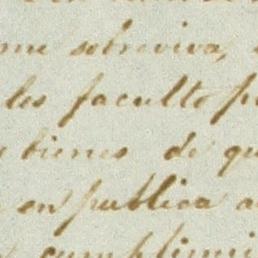 me sobreviva,
les faculto p
bienes de qu
en publica a
cumplimi